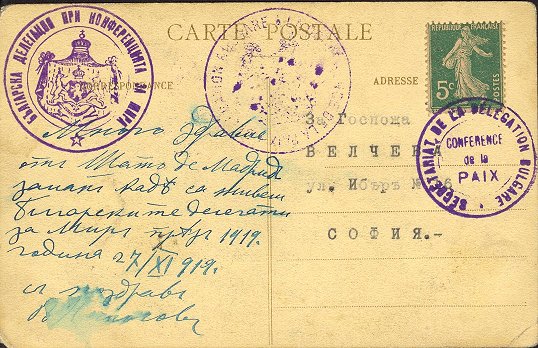 CARTE POSTALE
БЪЛГАРСКА ДЕЛЕГАЦИЯ ПРИ КОНФЕРЕНЦИЯТА МИРА
CORRESPONDANCE
ADRESSE
5c
POSTES
SECRETARIAT DE LA DÉLÉGATION BULGARE
CONFERENCE
de la
PAIX
За Госпожа
ВЕЛЧЕВА
ул. Ибъръ № 8
СОФИЯ.-
Много здраве
отъ Шато де Мадридъ
живеят
българските делегати
за Миръ презъ 1919.
година 27/XI 919.
с поздравъ